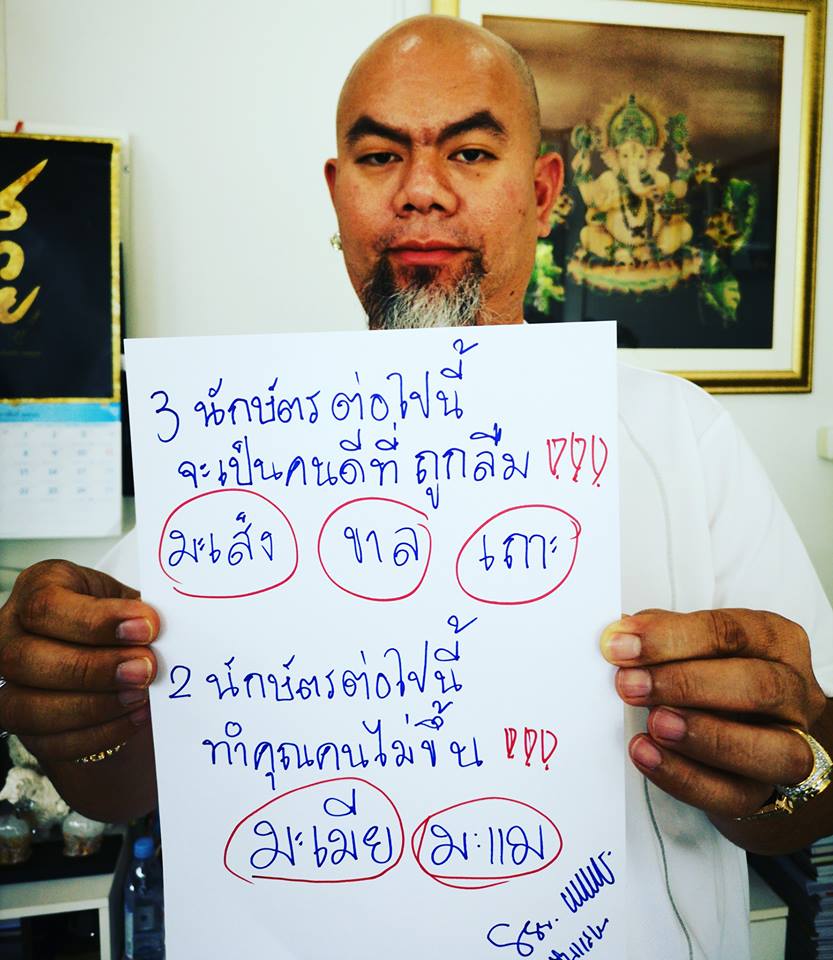 3 นักษัตร ต่อไปนี้
จะเป็นคนดีที่ ถูกลืม !!!
มะเส็ง ขาล เถาะ
2 นักษัตรต่อไปนี้
ทำคุณคนไม่ขึ้น !!!
มะเมีย มะแม